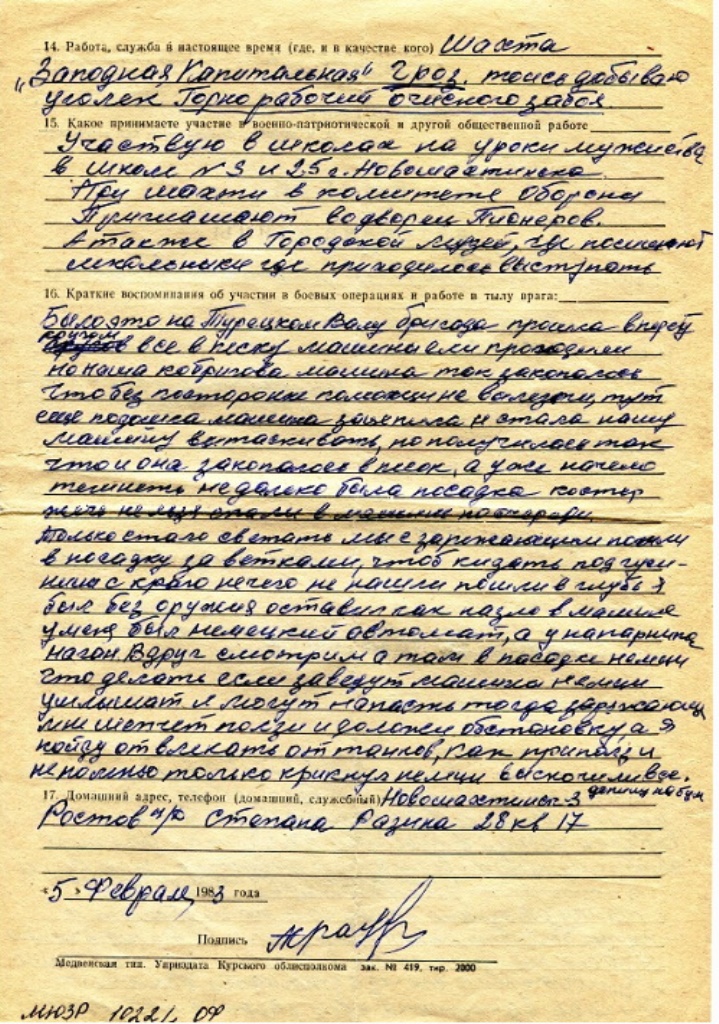 14. Работа, служба в настоящее время (где, и в качестве кого) Шахта
"Заподная Капитальная" Гроз. тоись добываю
уголек Горно рабочий очисного забоя.
15. Какое принимаете участие в военно-патриотической и другой общественной работе
Участвую в школах на уроки мужества
в школ № 3 и 25 г. Новошахтинска.
При шахти в комитете Оборона
Приглашают водворец Пионеров.
А также в Городской музей, где посищают
школьники где приходилось выступать
16. Краткие воспоминания об участии в боевых операциях и работе в тылу врага:
Было это на Турецком Валу бригада прошла вперёд
кругом все в песку машины ели проходили
но наша комбригова машина так закопалось
что без посторонне помощи не вылезти, тут
еще подошла машина зацепила и стала нашу
машину вытаскивать, но получилось так
что и она закопалось в песок, а уже начело
темнеть недалеко была посадка костер
жечь нельзя спали в машине поочереди.
Только стало светать мы с заряжающим пошли
в посадку за ветками, чтоб кидать под гусе-
ницы с краю нечего не нашли пошли в глубь я
был без оружия оставил как назло в машине
у меня был немецкий автомат, а у напарника
наган Вдруг смотрим а там в посадки немцы
что делать если заведут машина немци
услышат и могут напасть тогда заряжающи
мне шепчет ползи и доложи обстановку, а я
пойду отвлекать от танков, как приполз и
не помню только крикнул немци выскочили все.
17. Домашний адрес, телефон (домашний, служебный) Новошахтинск-3
Ростов обл Степана Разина 28 кв 17
«5» Февраля, 1983 года
Подпись
Медвенская тип. Уприздата Курского облисполкома зак. № 419, тир. 2000
МЮЗР 10221 ОФ